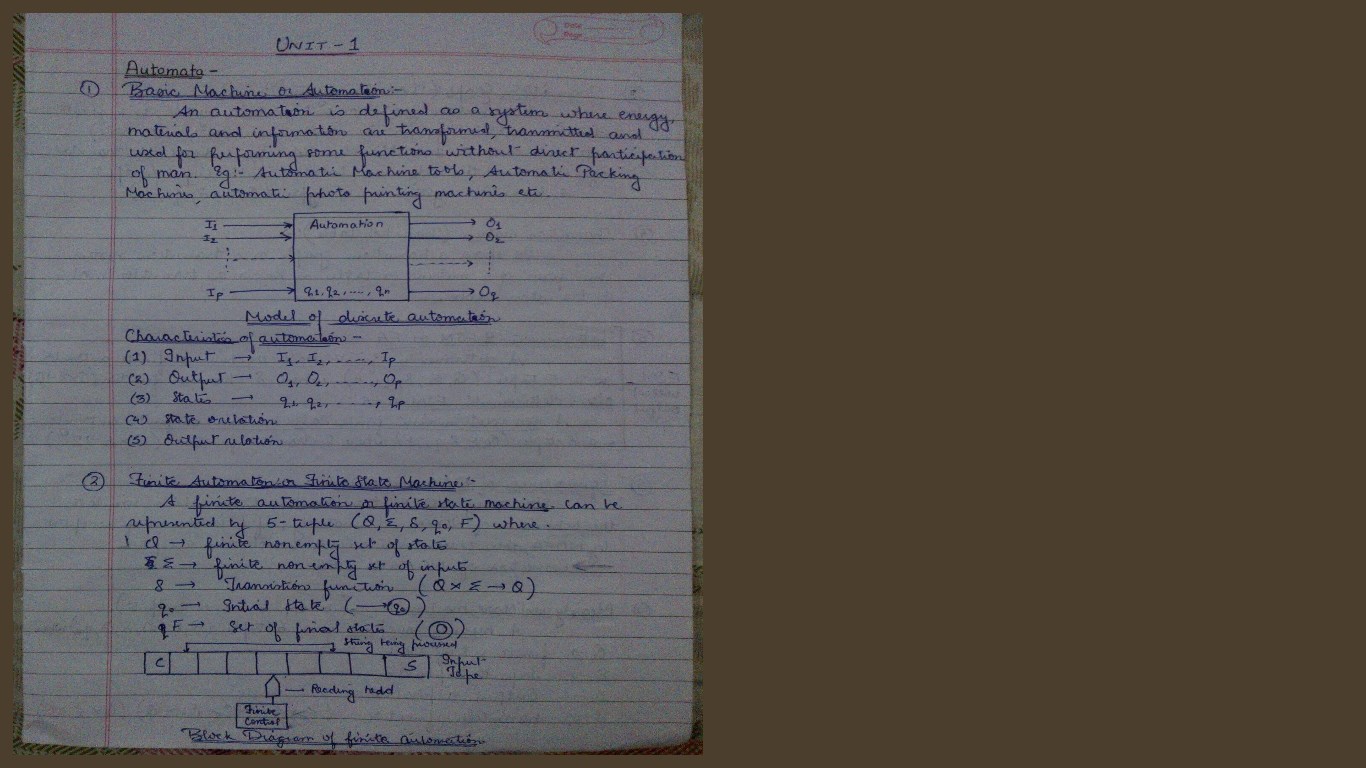 UNIT - 1
Automata -
① Basic Machine or Automation:-
An automation is defined as a system where energy,
materials and information are transformed, transmitted and
used for performing some functions without direct participation
of man. Eg:- Automatic Machine tools, Automatic Packing
Machines, automatic photo printing machines etc.
I1 Automation O1
I2 O2
Ip q1, q2, ...., qn Oq
Model of discrete automation
Characteristics of automation -
(1) Input → I1, I2, ....., Ip
(2) Output → O1, O2, ......, Op
(3) States → q1, q2, ......, qp
(4) State relation
(5) Output relation
② Finite Automaton or Finite State Machine:-
A finite automation or finite state machine can be
represented by 5-tuple (Q, Σ, δ, q0, F) where.
Q → finite nonempty set of states
Σ → finite non empty set of inputs
δ → Transistion function (Q × Σ → Q)
q0 → Intial state (→ q0)
F → Set of final states (O)
String being processed
C S Input
Tape
Reading
Finite
Control
Block Diagram of finite automation